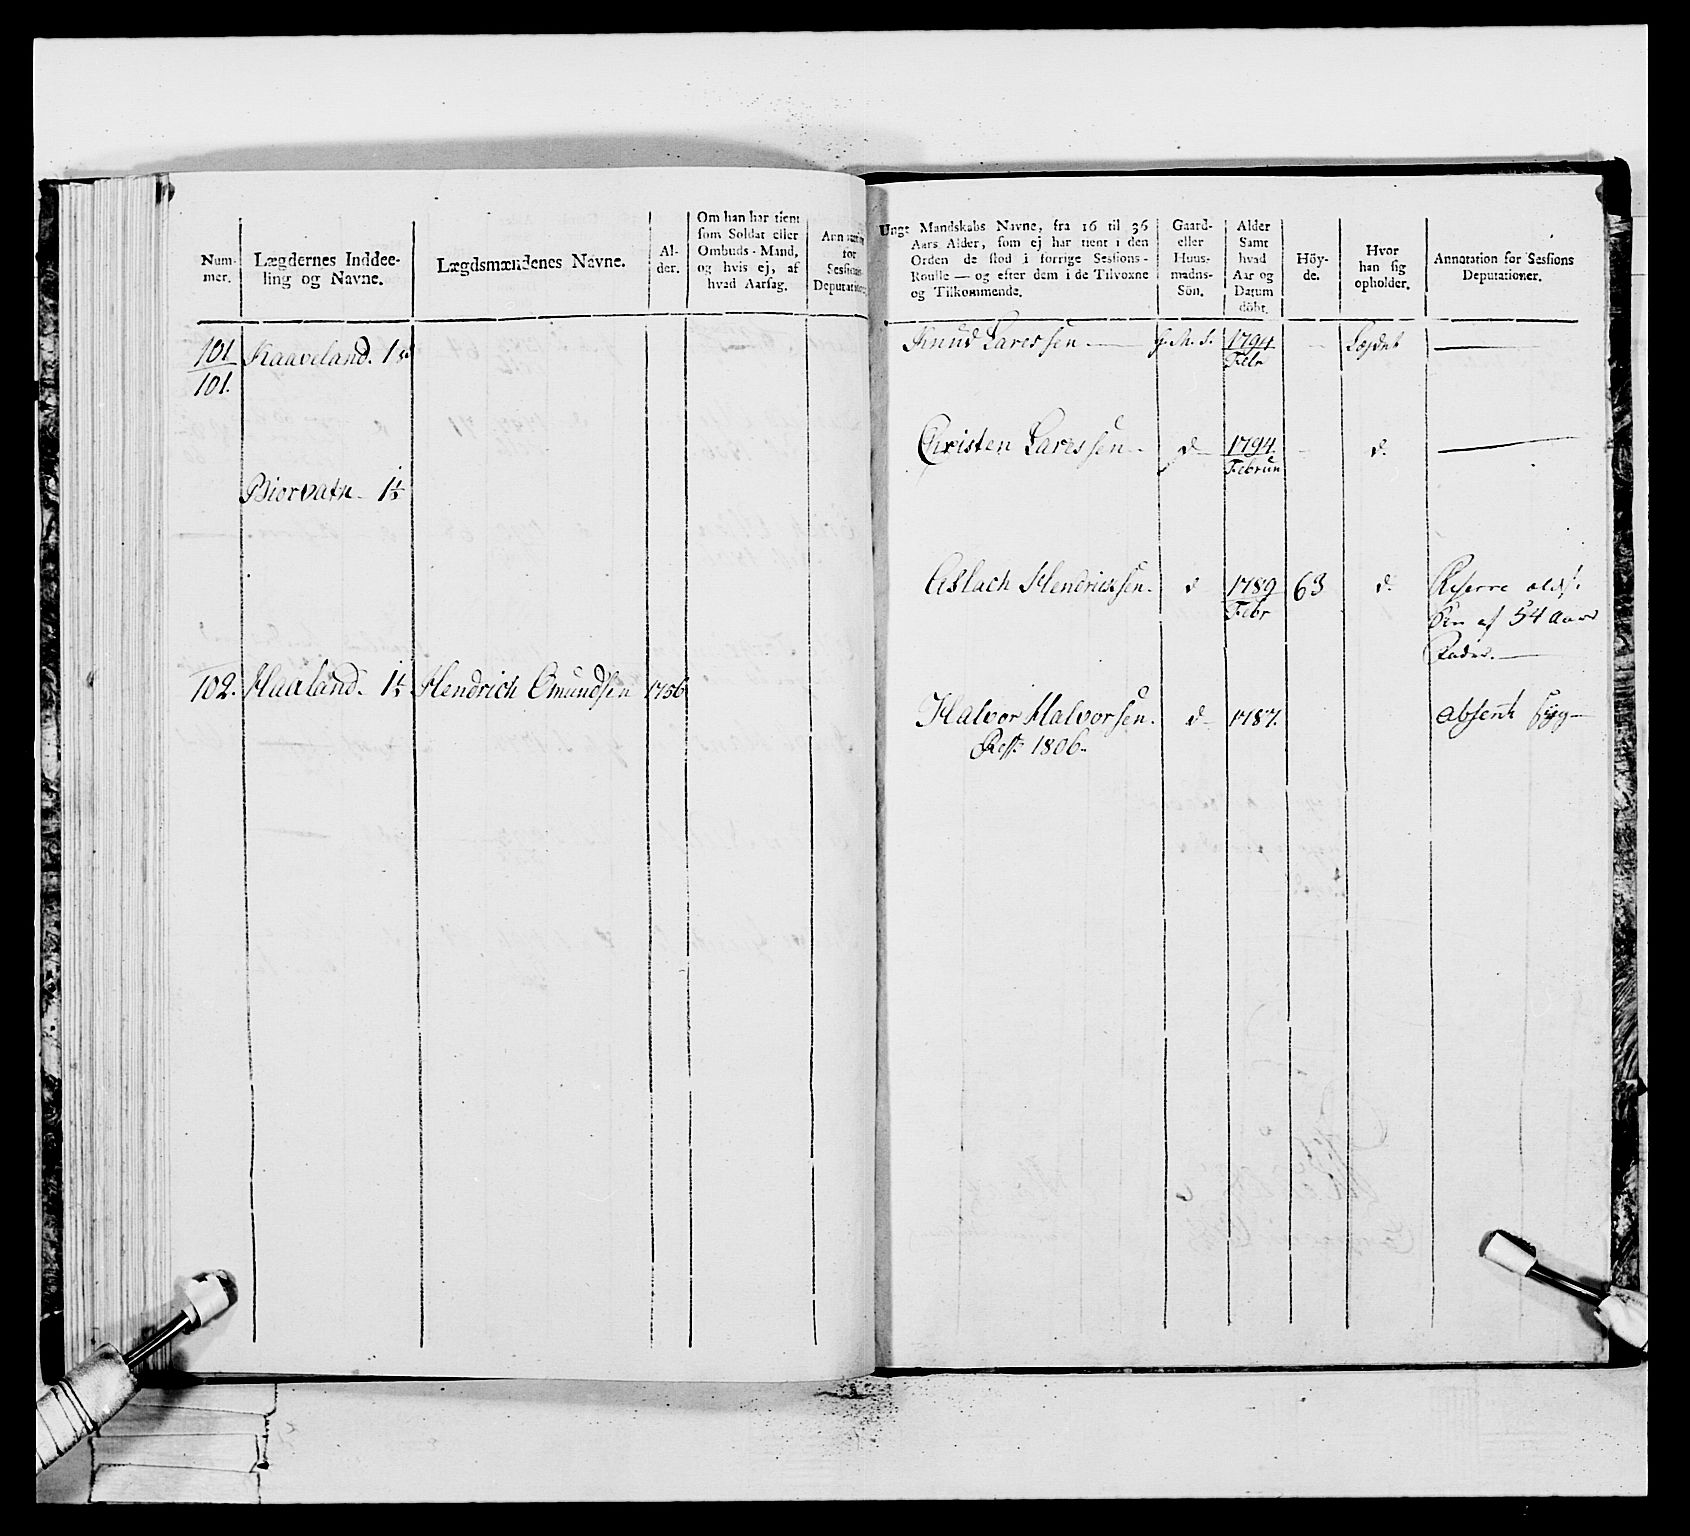 Num-
mer.
Lægdernes Inddee-
ling og Navne.
Lægdsmændenes Navne.
Al-
der.
Om han har tient
som Soldat eller
Ombuds-Mand,
og hvis ej, af
hvad Aarsag.
for
Sessions-
101 Kaaveland. 1
101.
Biorvatn 1½
102. Haaland. 1½ Hendrich Omundsen 1756
Unge Mandskabs Navne, fra 16 til 36
Aars Alder, som ej har tient i den
Orden de stod i forrige Sessions-
Roulle — og efter dem i de Tilvoxne
og Tilkommende.
Gaard-
eller
Huus-
madns-
Sön.
Alder
Samt
hvad
Aar og
Datum
döbt.
Höy-
de.
Hvor
han sig
opholder.
Annotation for Sessions
Deputationer.
Knud Larssen — 1794 —
Febr
Christen Larssen — d 1794 - d. —
Februn
Aslach Hendrichsen. d 1789 63 d. Reserve
Febr af 54 aars
Halvor Halvorsen. d 1787. absent syg —
Rest 1806.